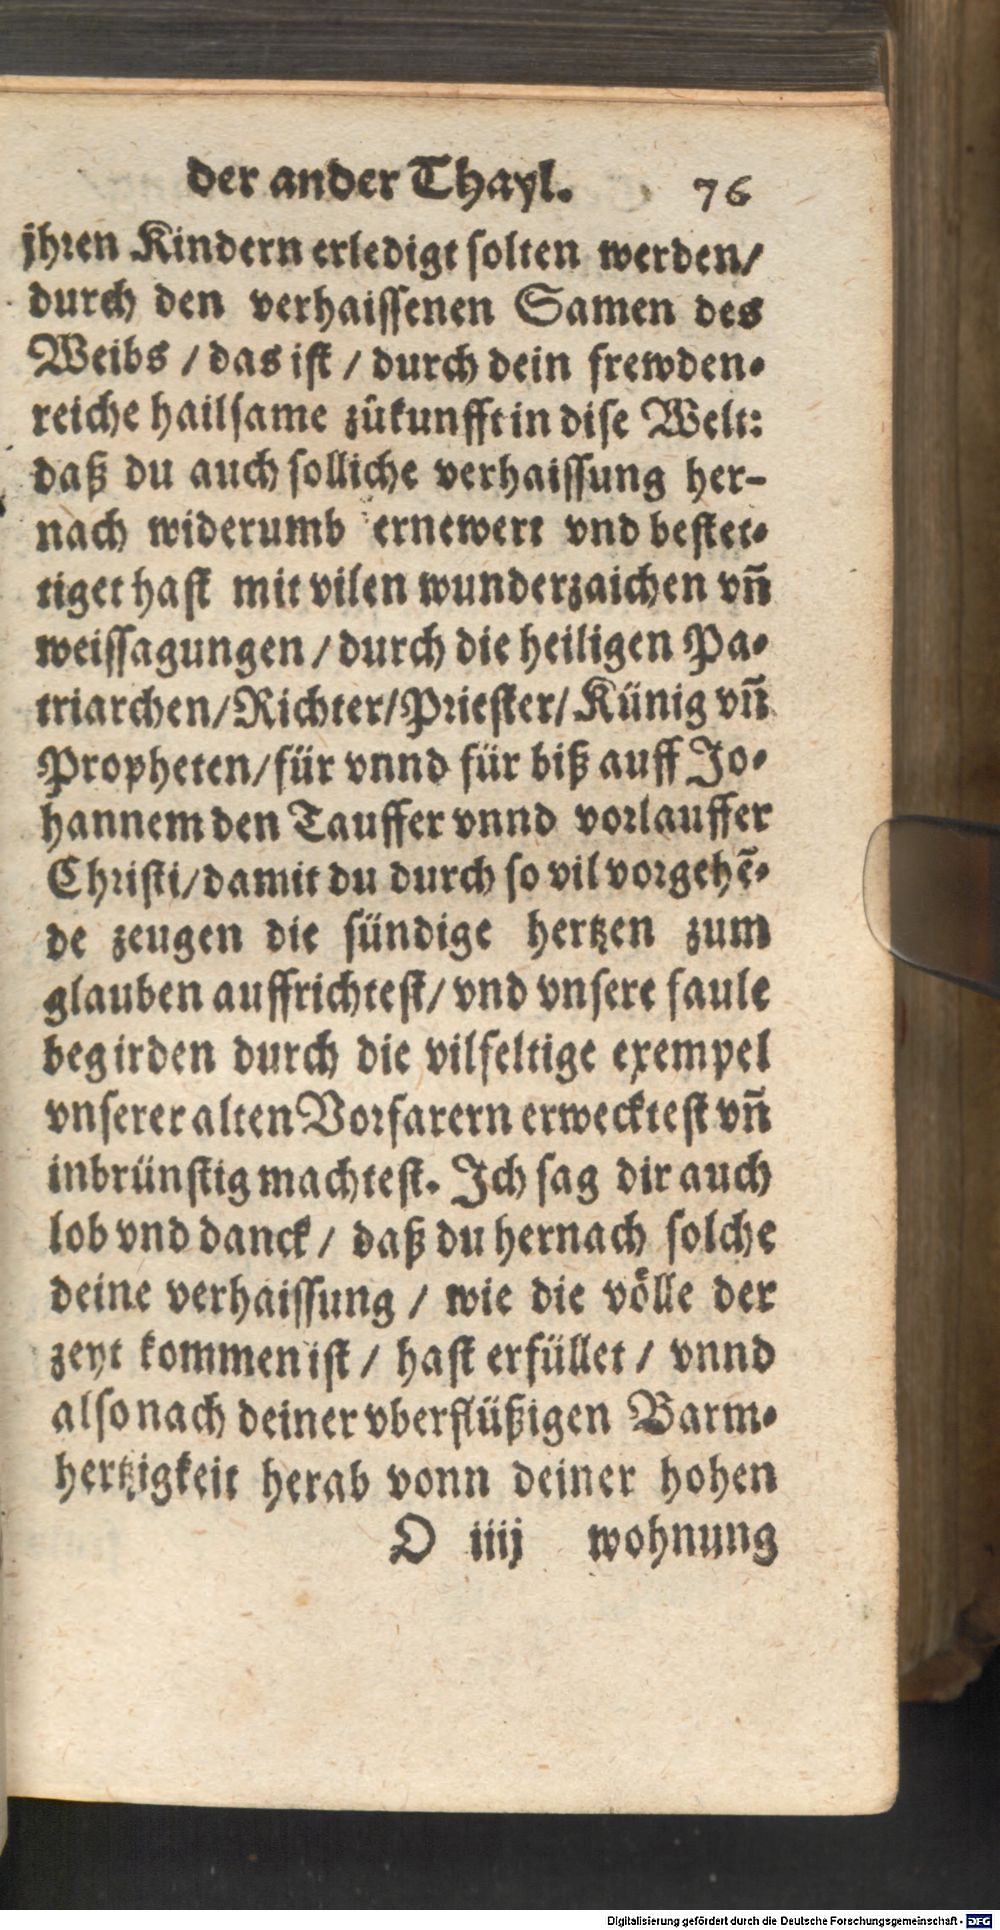 der ander Thayl. 76
jhren Kindern erledigt solten werden/
durch den verhaissenen Samen des
Weibs / das ist / durch dein frewden-
reiche hailsame zůkunfft in dise Welt:
daß du auch solliche verhaissung her-
nach widerumb ernewert vnd bestet-
tiget hast mit vilen wunderzaichen vñ
weissagungen / durch die heiligen Pa-
triarchen/Richter/Priester/Künig vñ
Propheten/für vnnd für biß auff Jo-
hannem den Tauffer vnnd vorlauffer
Christi/damit du durch so vil vorgehẽ-
de zeugen die sündige hertzen zum
glauben auffrichtest/ vnd vnsere faule
begirden durch die vilfeltige exempel
vnserer alten Vorfarern erwecktest vñ
inbrünstig machtest. Ich sag dir auch
lob vnd danck / daß du hernach solche
deine verhaissung / wie die völle der
zeyt kommen ist / hast erfüllet / vnnd
also nach deiner vberflüßigen Barm-
hertzigkeit herab vonn deiner hohen
O iiij wohnung
Digitalisierung gefördert durch die Deutsche Forschungsgemeinschaft - DFG